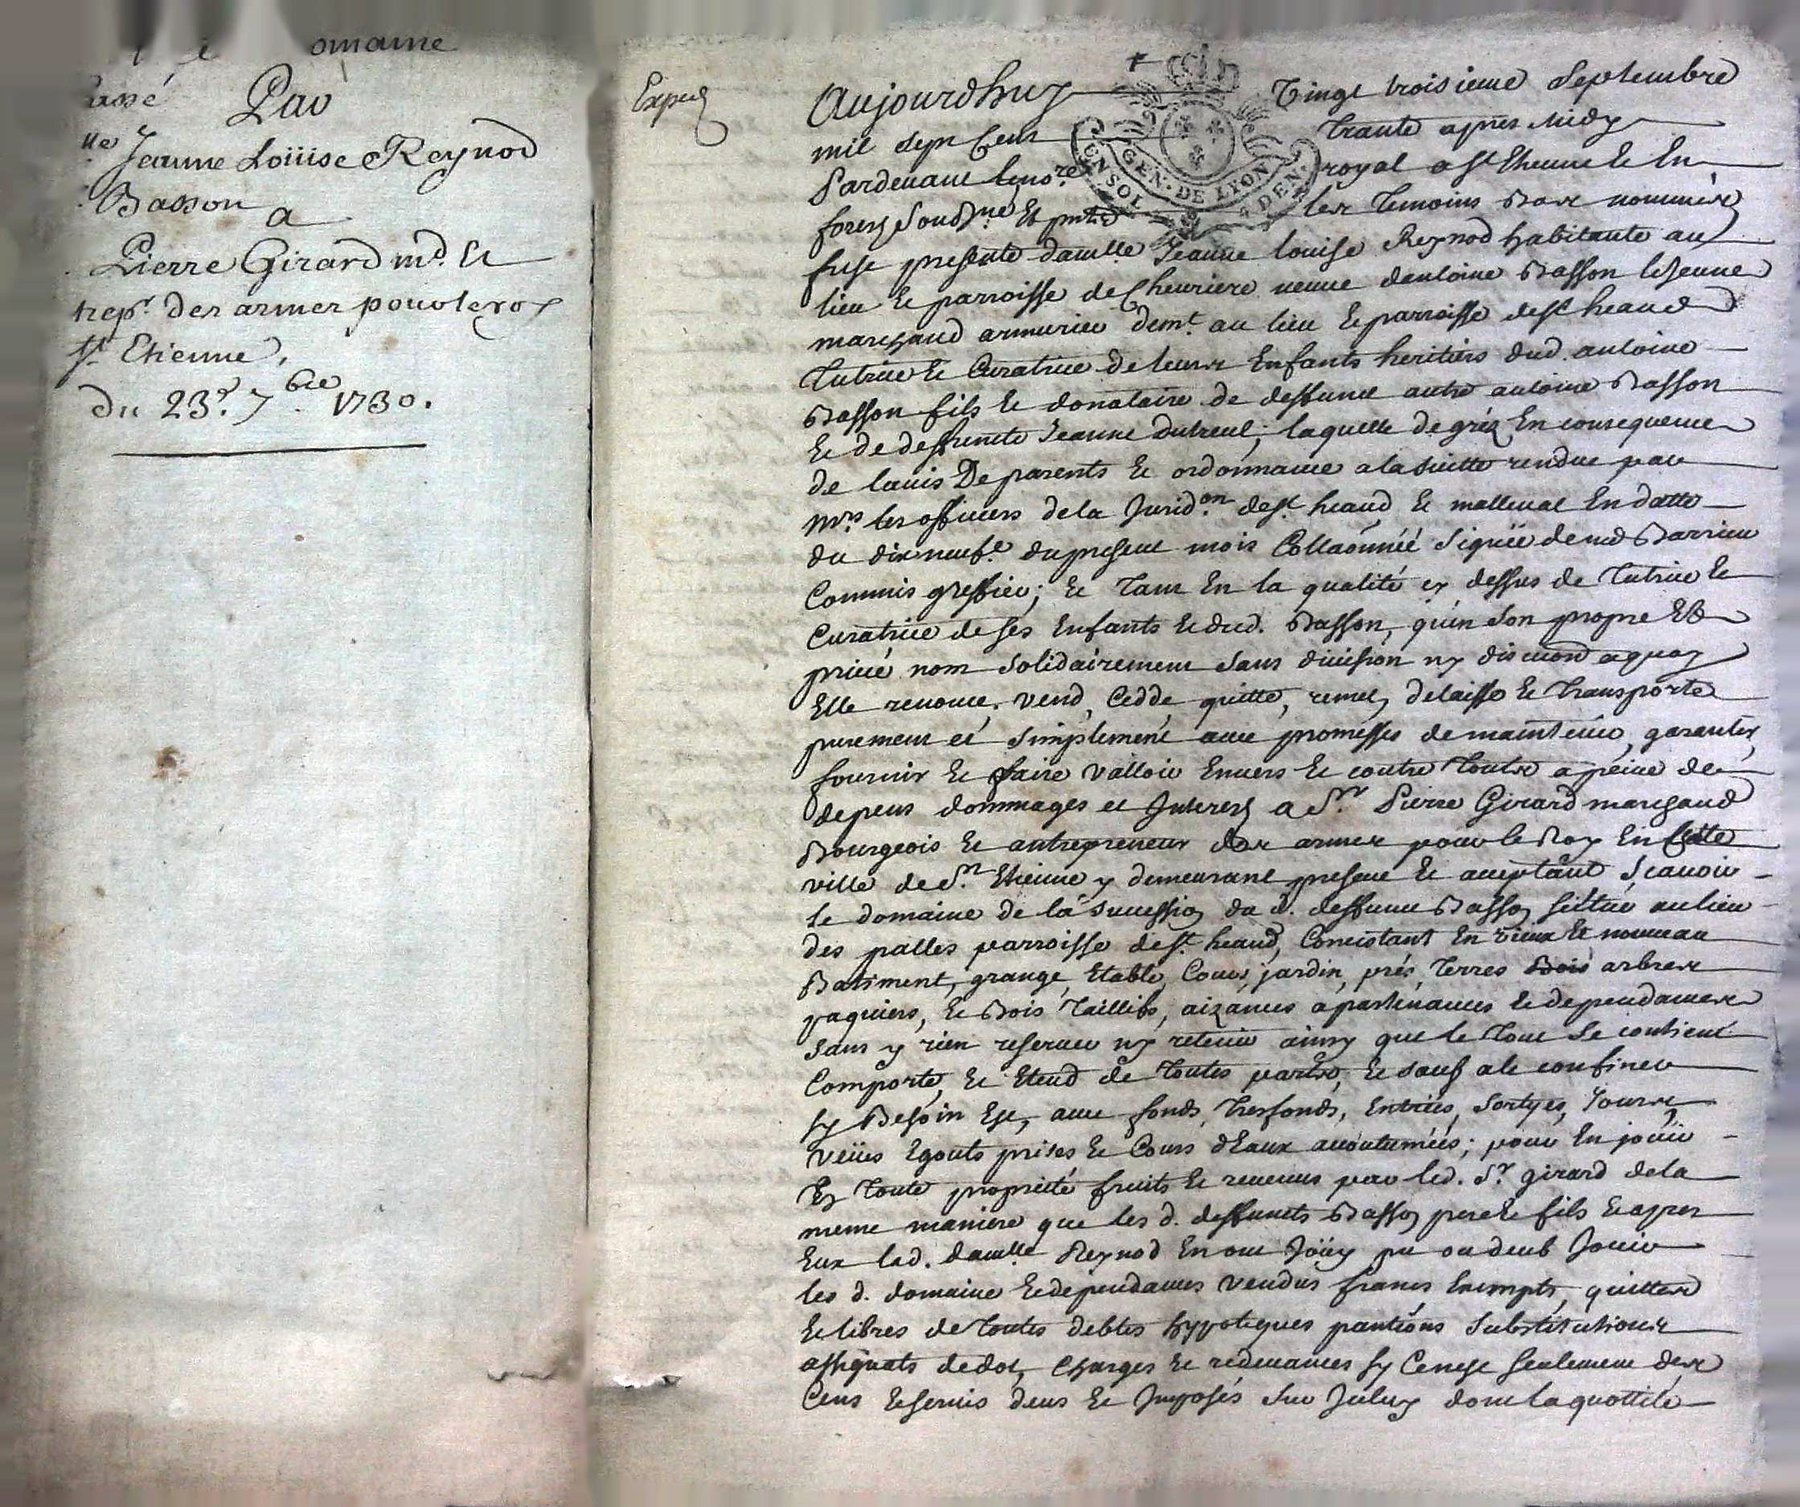 omaine
passé
Par
lle Jeanne Loüise Reynod
Basson
a
Pierre Girard md. Et
trepr. des armes pour le roy
St Etienne,
du 23e. 7bre 1730.
Exped
Aujourdhuy Vingt troisieme Septembre
mil sept Cent trante apres midy
Pardevant le nore royal a St Etienne Et En
forez Sousgné Et pnts les temoins Bas nommés
fust presente damlle Jeanne Louise Reynod habitante au
lieu Et parroisse de Chevrieres veuve dantoine Basson le Jeune
marchand armurier demt. au lieu Et parroisse de St heand
tutrice Et Curatrice de leurs Enfants heritiers dud. antoine
Basson fils Et donataire de deffunct autre antoine Basson
Et de deffuncte Jeanne dutreul; laquelle de gréz En consequence
de lavis De parents Et ordonnance a la suitte rendue par
Mrs les officiers de la Juridon. de St heand Et malleval En datte
du dix neufe. du present mois Collaonnéé Signéé dud Barrieu
Commis greffier; Et tant En la qualité cy dessus de tutrice Et
Curatrice de ses Enfants Et dud. Basson, qu'en son propre Et
privé nom solidairement sans division ny discution a quoy
Elle renonce, vend, Cedde, quitte, remet, delaisse Et transporte
purement et simplement avec promesses de maintenir, garentir,
fournir Et faire valloir Envers Et contre toutes a peine de
depens dommages et Interests a Sr. Pierre Girard marchand
Bourgeois Et antrepreneur des armes pour le Roy En Cette
ville de St. Etienne y demeurant present Et aceptant Scavoir
le domaine de la succession du d. deffunct Basson sittué au lieu
des palles parroisse de St. heand, Concistant En vieux Et nouveau
Batiment, grange, Etable, Cour, jardin, prés, terres Bois arbres
paquiers, Et Bois taillifs, aizances apartenances Et dependances
sans y rien reserver ny retenir ainsy que le tout se contient
Comporte, Et Etend de toutes parts, Et sauf a le confiner
sy Besoin Est, avec fonds, tresfonds, Entrées, Sortyes, Jours,
veües Egouts prises Et Cours d'Eaux accoutumées; pour En jouir
En toute propriété fruits Et revenus par led. Sr. girard de la
meme maniere que les d. deffuncts Basson pere Et fils Et apres
Eux lad. damlle Reynod En ont Joüy pu ou deub Jouir
les d. domaine Et dependances vendus francs Exempts, quittes
Et libres de toutes debtes hypoteques pantions Substitutions
assignats de dot, Charges Et redevances sy Ce nest seulement des
Cens Et servis deus Et Imposés sur Iceluy dont la quottité
GEN. DE LYON
4 DEN.